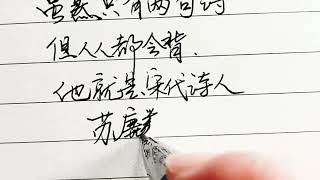 虽然只有两句诗
但人人都会背.
他就是宋代诗人
苏麟